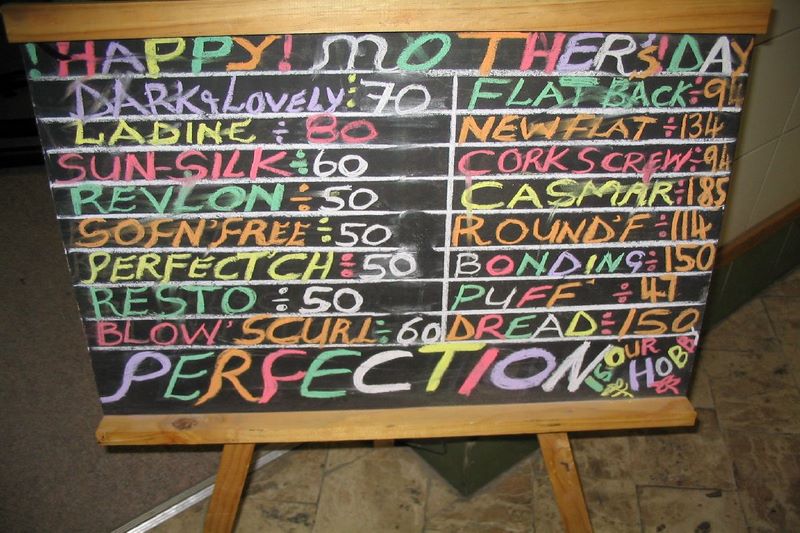 ! HAPPY! MOTHER'S! DAY
DARK & LOVELY ÷ 70
LADINE ÷ 80
SUN-SILK ÷ 60
REVLON ÷ 50
SOFN'FREE ÷ 50
PERFECT'CH ÷ 50
RESTO ÷ 50
BLOW'SCURL ÷ 60
FLAT BACK ÷ 94
NEW FLAT ÷ 134
CORKSCREW ÷ 94
CASMAR ÷ 185
ROUND'F ÷ 114
BONDING ÷ 150
PUFF ÷ 47
DREAD ÷ 150
PERFECTION IS OUR
HOBB